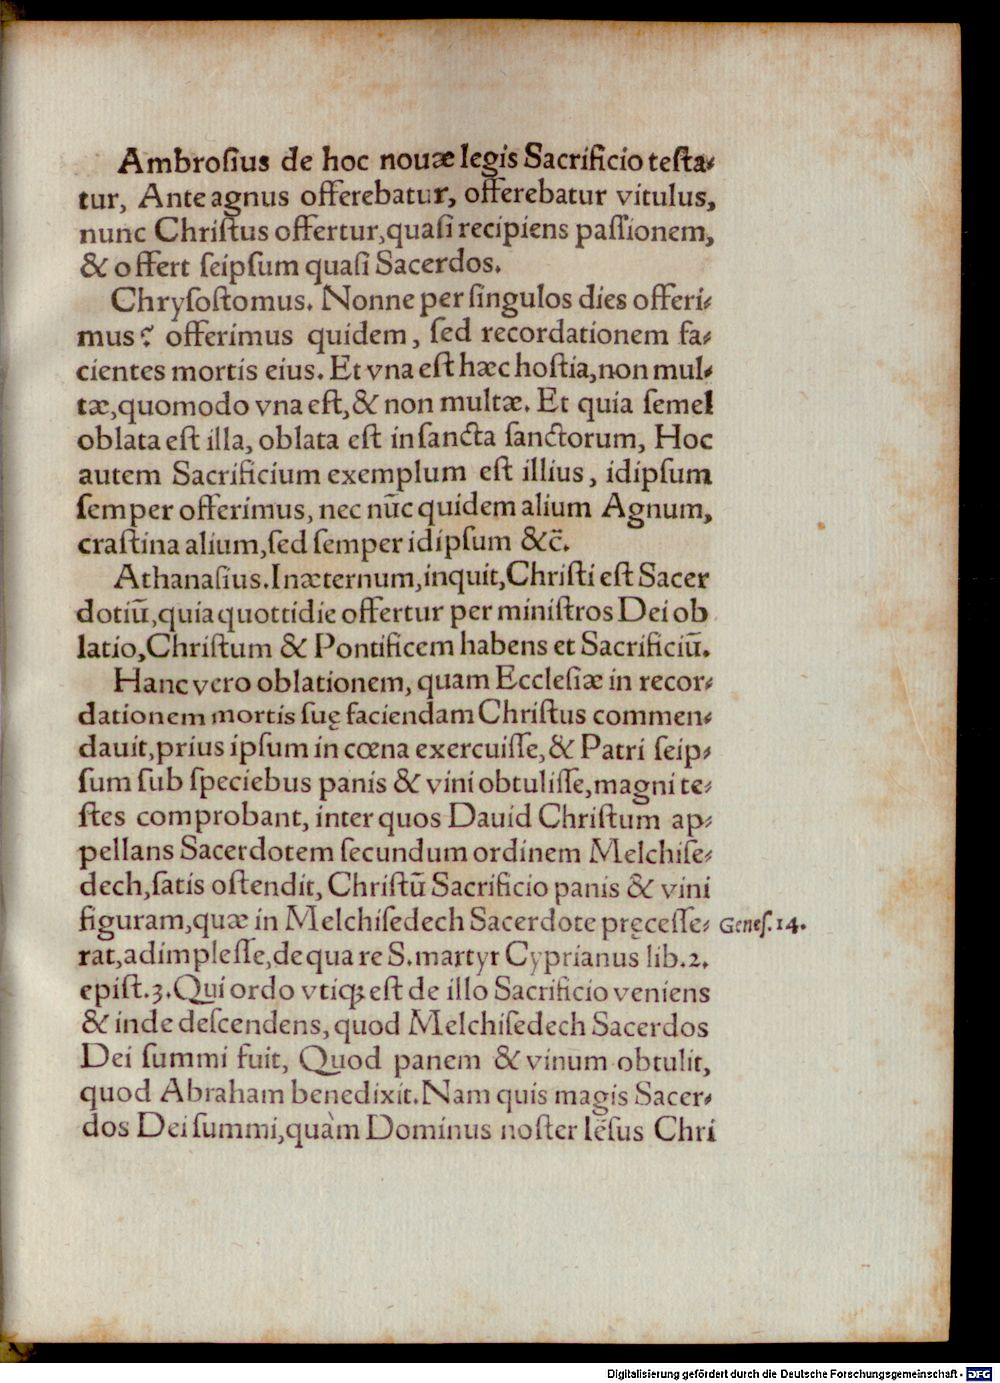 Ambroſius de hoc nouæ legis Sacrificio teſta⸗
tur, Ante agnus offerebatur, offerebatur vitulus,
nunc Chriſtus offertur, quaſi recipiens paſſionem,
& offert ſeipſum quaſi Sacerdos.
Chryſoſtomus. Nonne per ſingulos dies offeri⸗
mus? offerimus quidem, ſed recordationem fa⸗
cientes mortis eius. Et vna eſt hæc hoſtia, non mul⸗
tæ, quomodo vna eſt, & non multæ. Et quia ſemel
oblata eſt illa, oblata eſt in ſancta ſanctorum, Hoc
autem Sacrificium exemplum eſt illius, idipſum
ſemper offerimus, nec nūc quidem alium Agnum,
craſtina alium, ſed ſemper idipſum &c̄.
Athanaſius. In æternum, inquit, Chriſti eſt Sacer
dotiū, quia quottidie offertur per miniſtros Dei ob
latio, Chriſtum & Pontificem habens et Sacrificiū.
Hanc vero oblationem, quam Eccleſiæ in recor⸗
dationem mortis ſuę faciendam Chriſtus commen⸗
dauit, prius ipſum in cœna exercuiſſe, & Patri ſeip⸗
ſum ſub ſpeciebus panis & vini obtuliſſe, magni te⸗
ſtes comprobant, inter quos Dauid Chriſtum ap⸗
pellans Sacerdotem ſecundum ordinem Melchiſe⸗
dech, ſatis oſtendit, Chriſtū Sacrificio panis & vini
figuram, quæ in Melchiſedech Sacerdote pręceſſe⸗ Geneſ. 14.
rat, adimpleſſe, de qua re S. martyr Cyprianus lib. 2.
epiſt. 3. Qui ordo vtiqꝫ eſt de illo Sacrificio veniens
& inde deſcendens, quod Melchiſedech Sacerdos
Dei ſummi fuit, Quod panem & vinum obtulit,
quod Abraham benedixit. Nam quis magis Sacer⸗
dos Dei ſummi, quàm Dominus noſter Ieſus Chri
Digitalisierung gefördert durch die Deutsche Forschungsgemeinschaft - DFG